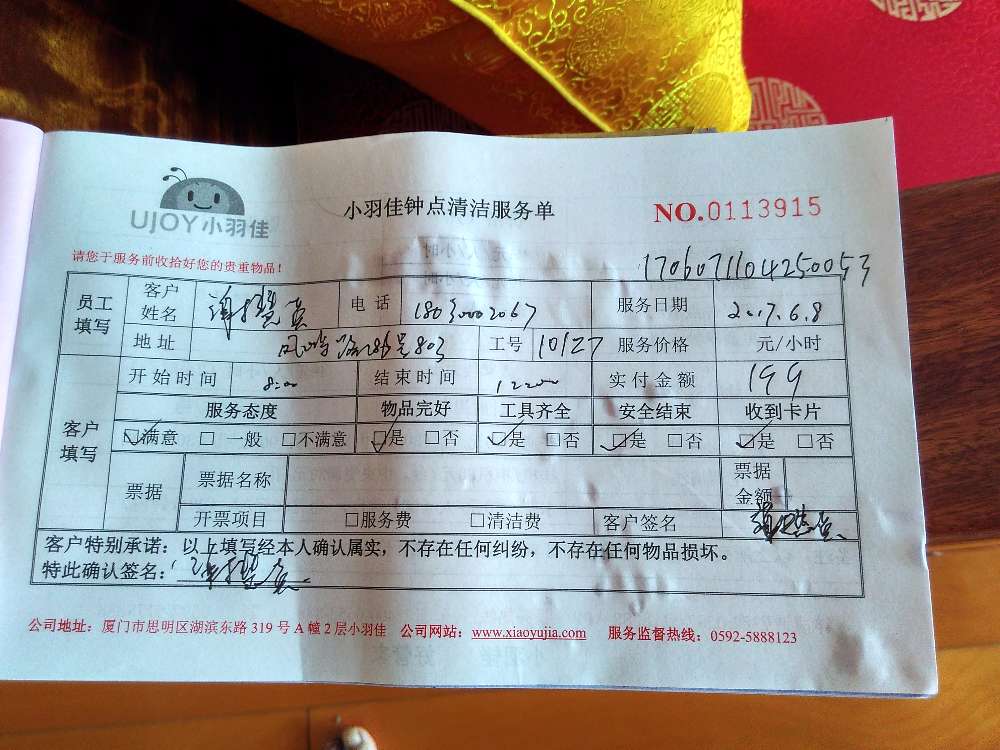 UJOY小羽佳
小羽佳钟点清洁服务单
NO.0113915
请您于服务前收拾好您的贵重物品!
1706071104250053
员工填写 客户姓名 电话 18030002067 服务日期 2017.6.8
地址 工号 10127 服务价格 元/小时
客户填写 开始时间 8:00 结束时间 12:00 实付金额 199
服务态度 物品完好 工具齐全 安全结束 收到卡片
☑满意 □一般 □不满意 ☑是 □否 ☑是 □否 ☑是 □否 ☑是 □否
票据 票据名称 票据金额
开票项目 □服务费 □清洁费 客户签名
客户特别承诺：以上填写经本人确认属实，不存在任何纠纷，不存在任何物品损坏。
特此确认签名：
公司地址：厦门市思明区湖滨东路 319 号 A 幢 2 层小羽佳 公司网站：www.xiaoyujia.com 服务监督热线：0592-5888123